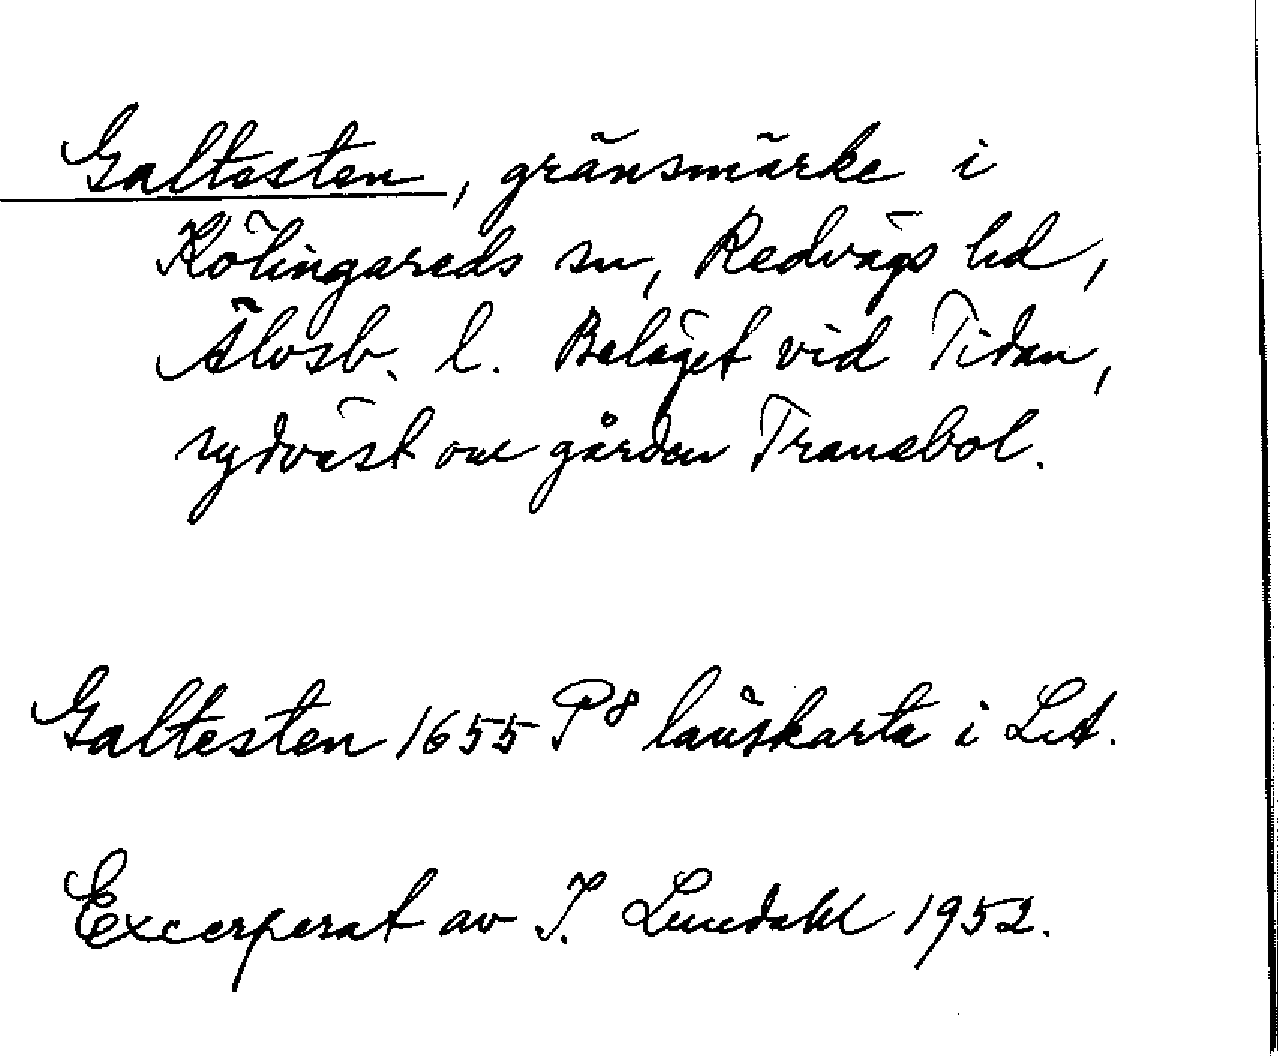 Galtesten, gränsmärke i
Kölingareds sn, Redvägs hd,
Älvsb. l. Beläget vid Tidan,
sydväst om gården Tranebol.
Galtesten 1655 P8 länskarta i LSA.
Excerperat av I. Lundahl 1952.